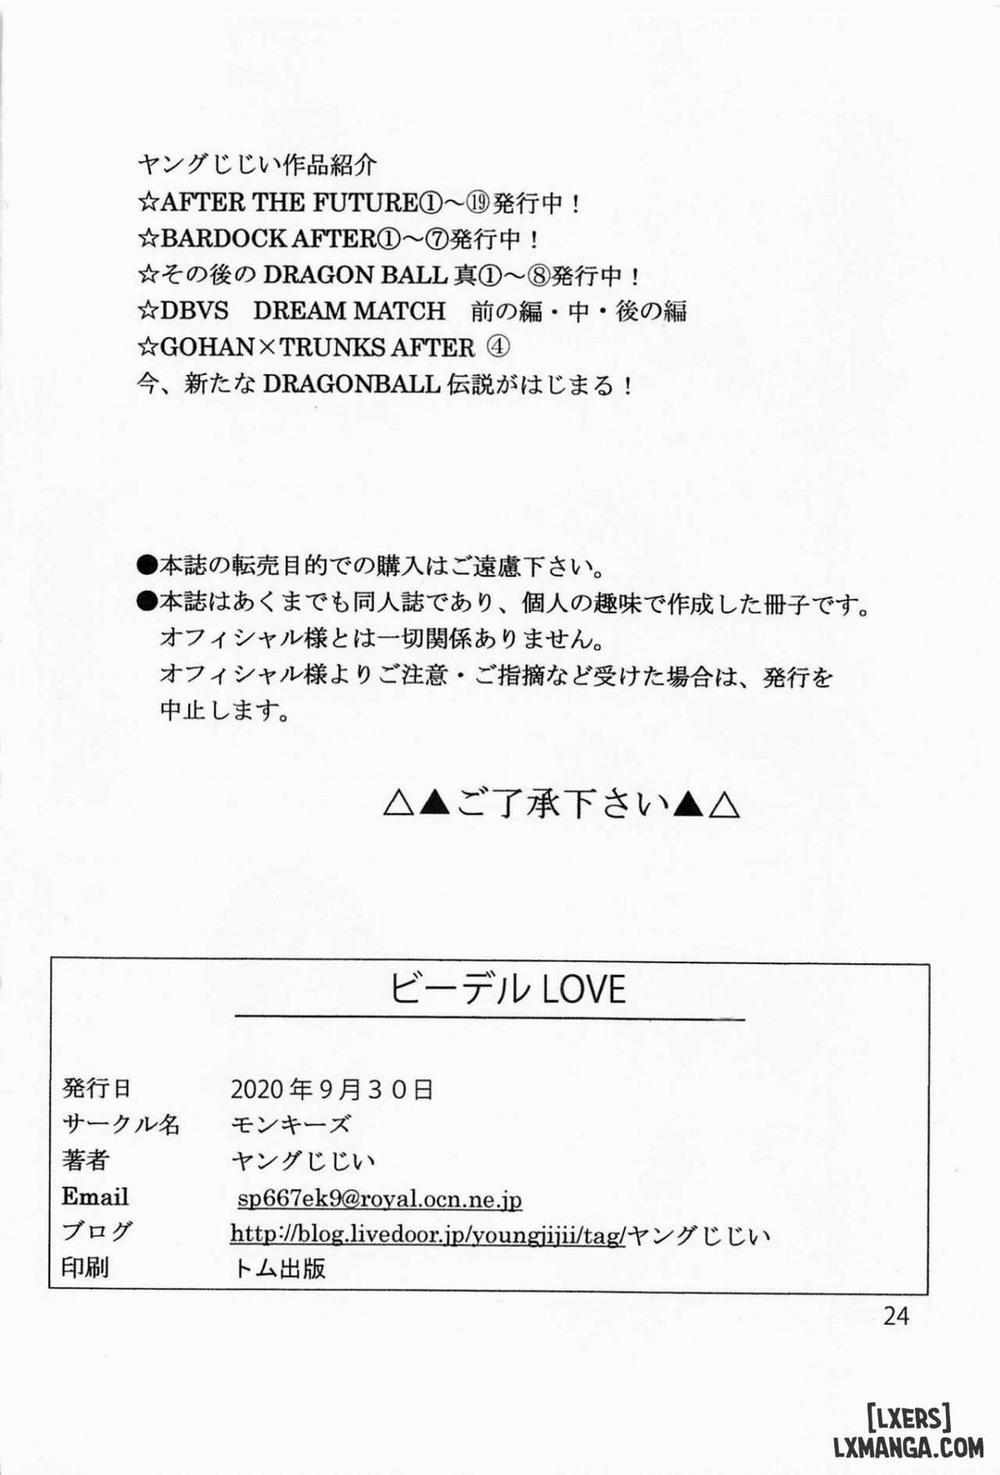 ヤングじじい作品紹介
☆AFTER THE FUTURE①～⑲発行中！
☆BARDOCK AFTER①～⑦発行中！
☆その後の DRAGON BALL 真①～⑧発行中！
☆DBVS　DREAM MATCH　前の編・中・後の編
☆GOHAN×TRUNKS AFTER ④
今、新たな DRAGONBALL 伝説がはじまる！
●本誌の転売目的での購入はご遠慮下さい。
●本誌はあくまでも同人誌であり、個人の趣味で作成した冊子です。
オフィシャル様とは一切関係ありません。
オフィシャル様よりご注意・ご指摘など受けた場合は、発行を
中止します。
△▲ご了承下さい▲△
ビーデル LOVE
発行日　2020 年９月３０日
サークル名　モンキーズ
著者　ヤングじじい
Email　sp667ek9@royal.ocn.ne.jp
ブログ　http://blog.livedoor.jp/youngjijii/tag/ヤングじじい
印刷　トム出版
24
[LXERS]
LXMANGA.COM